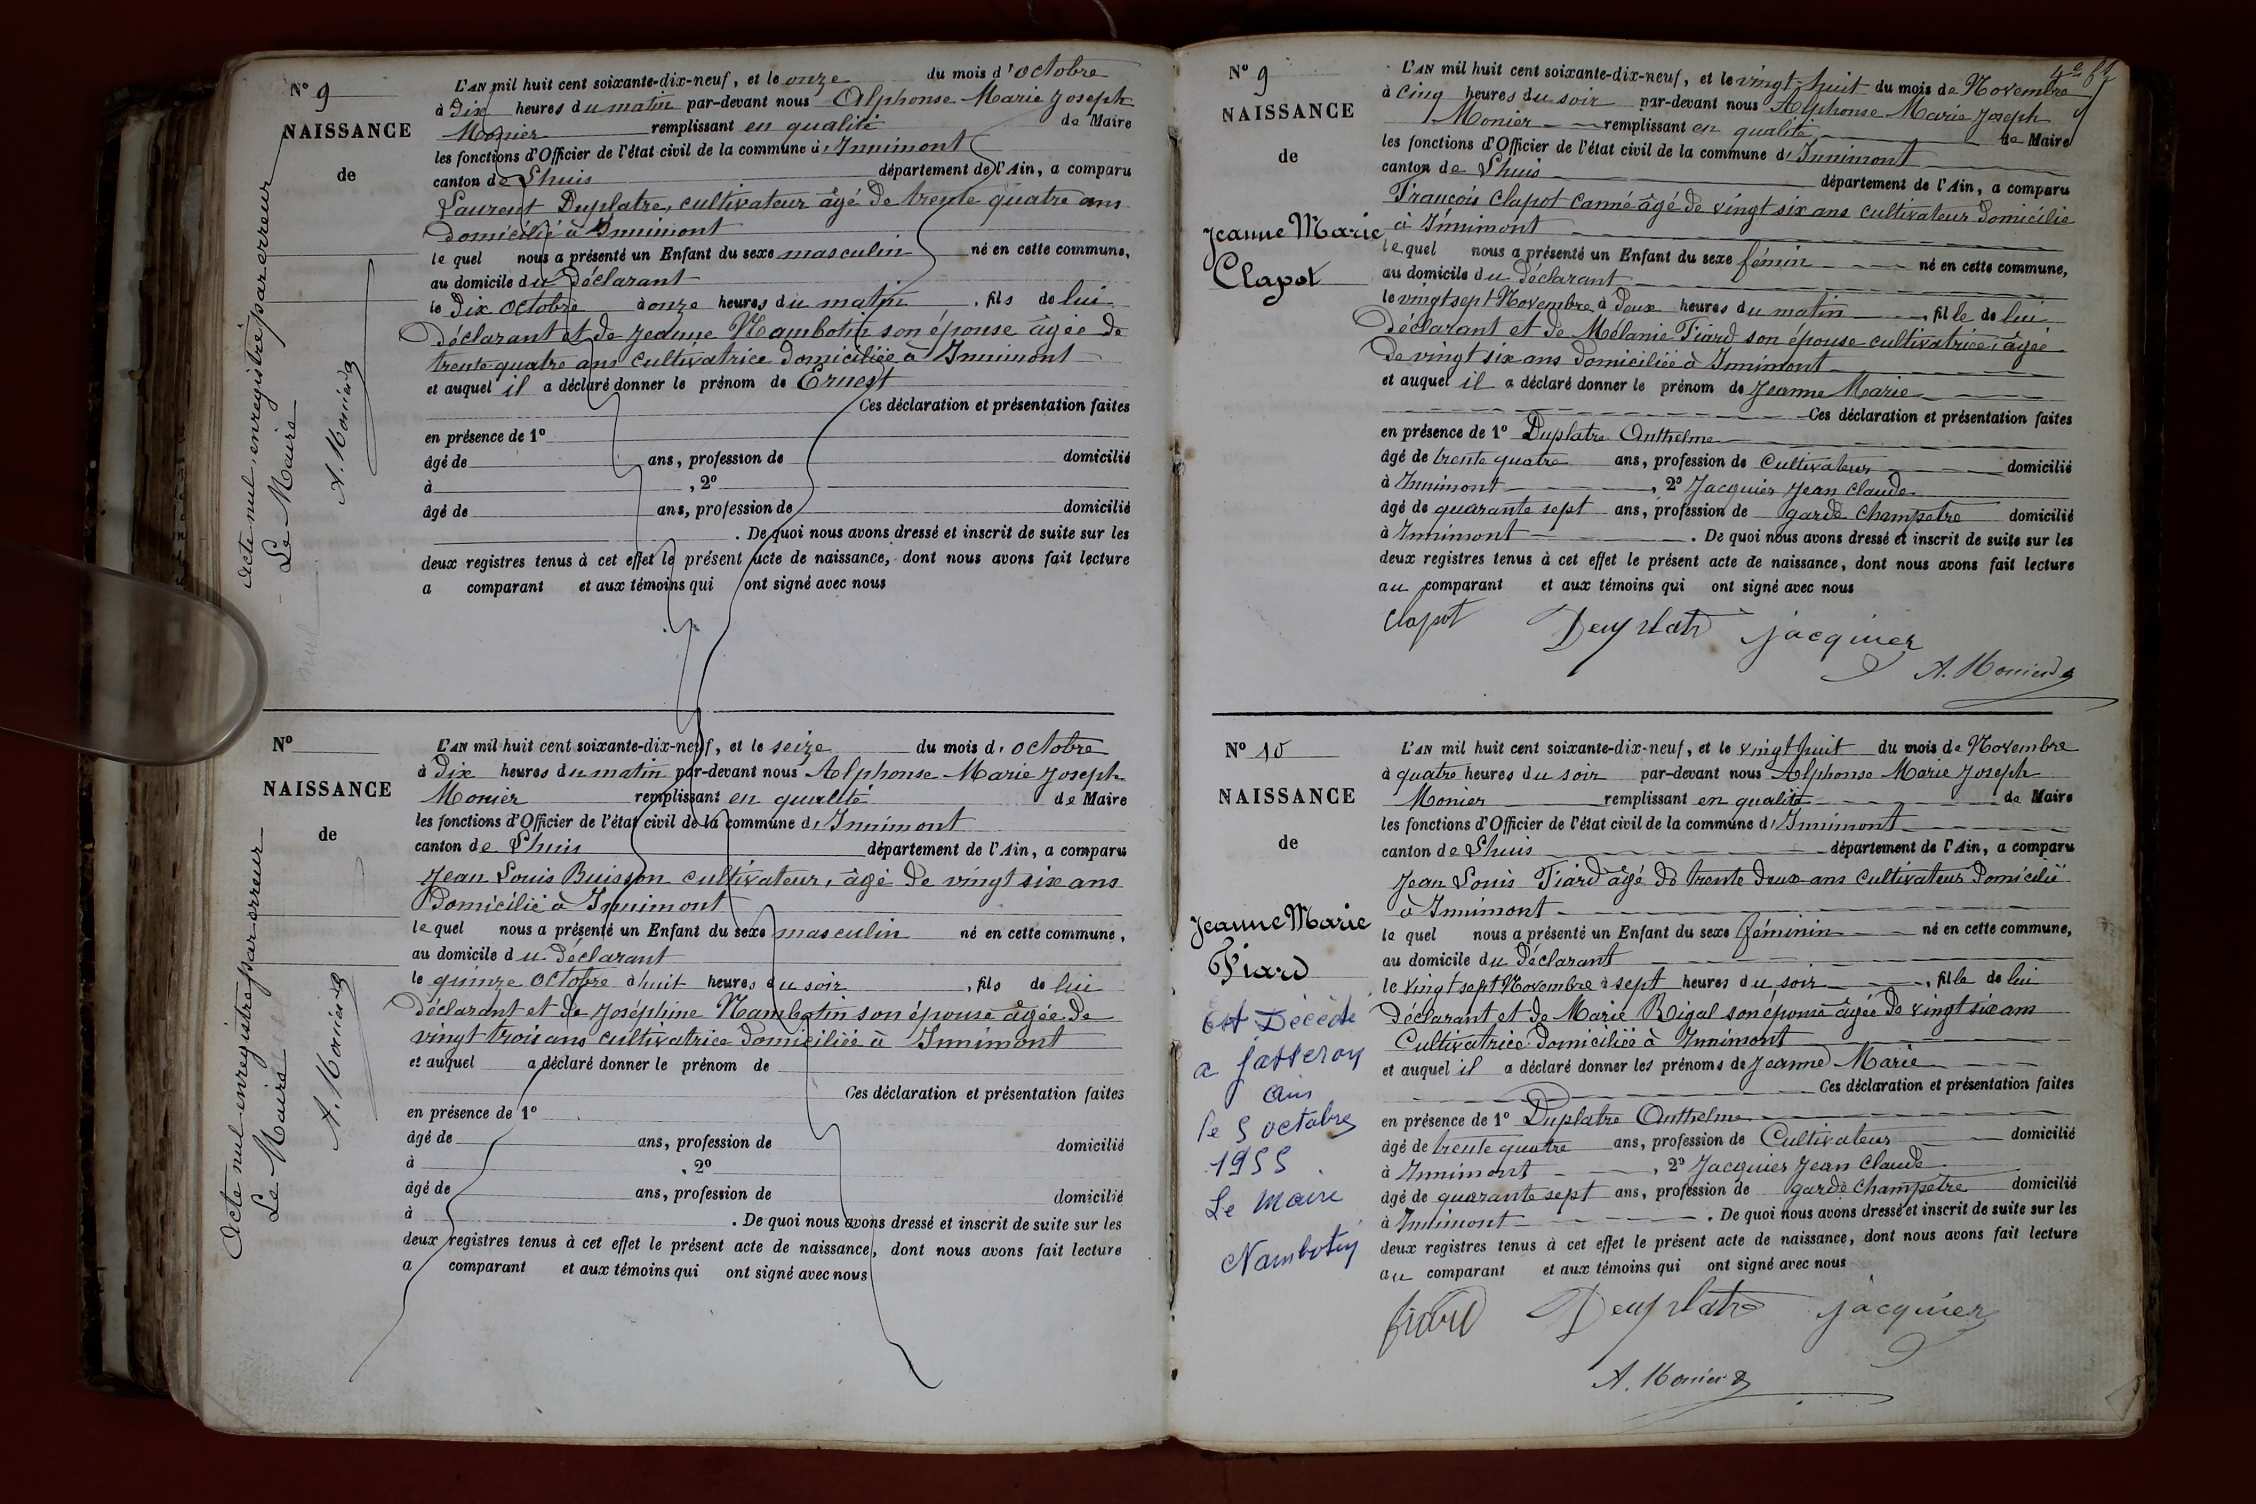 N° 9
NAISSANCE
de
Acte nul, enregistré par erreur
Le Maire
A. Monier
L'AN mil huit cent soixante-dix-neuf, et le onze du mois d'octobre
à Dix heures du matin par-devant nous Alphonse Marie Joseph
Monier remplissant en qualité de Maire
les fonctions d'Officier de l'état civil de la commune d'Innimont
canton de Lhuis département de l'Ain, a comparu
Laurent Duplatre, cultivateur âgé de trente quatre ans
domicilié à Innimont
le quel nous a présenté un Enfant du sexe masculin né en cette commune,
au domicile du Déclarant
le Dix Octobre à onze heures du matin, fils de lui
Déclarant et de Jeanne Nambotin son épouse âgée de
trente quatre ans cultivatrice domiciliée à Innimont
et auquel il a déclaré donner le prénom de Ernest
Ces déclaration et présentation faites
en présence de 1°
âgé de ans, profession de domicilié
à , 2°
âgé de ans, profession de domicilié
. De quoi nous avons dressé et inscrit de suite sur les
deux registres tenus à cet effet le présent acte de naissance, dont nous avons fait lecture
a comparant et aux témoins qui ont signé avec nous
nul
N°
NAISSANCE
de
Acte nul enregistré par erreur
Le Maire
A. Monier
L'AN mil huit cent soixante-dix-neuf, et le seize du mois d'octobre
à Dix heures du matin par-devant nous Alphonse Marie Joseph
Monier remplissant en qualité de Maire
les fonctions d'Officier de l'état civil de la commune d'Innimont
canton de Lhuis département de l'Ain, a comparu
Jean Louis Buisson cultivateur, âgé de vingt six ans
Domicilié à Innimont
le quel nous a présenté un Enfant du sexe masculin né en cette commune,
au domicile du Déclarant
le quinze Octobre à huit heures du soir, fils de lui
Déclarant et de Joséphine Nambotin son épouse âgée de
vingt trois ans cultivatrice domiciliée à Innimont
et auquel a déclaré donner le prénom de
Ces déclaration et présentation faites
en présence de 1°
âgé de ans, profession de domicilié
à , 2°
âgé de ans, profession de domicilié
à . De quoi nous avons dressé et inscrit de suite sur les
deux registres tenus à cet effet le présent acte de naissance, dont nous avons fait lecture
a comparant et aux témoins qui ont signé avec nous
N° 9
NAISSANCE
de
Jeanne Marie
Clapot
L'AN mil huit cent soixante-dix-neuf, et le vingt-huit du mois de Novembre
à cinq heures du soir par-devant nous Alphonse Marie Joseph
Monier remplissant en qualité de Maire
les fonctions d'Officier de l'état civil de la commune d'Innimont
canton de Lhuis département de l'Ain, a comparu
François Clapot Canné âgé de vingt six ans cultivateur domicilié
à Innimont
le quel nous a présenté un Enfant du sexe fémin né en cette commune,
au domicile du Déclarant
le vingt sept Novembre à deux heures du matin, fille de lui
Déclarant et de Mélanie Tiard son épouse cultivatrice, âgée
de vingt six ans domiciliée à Innimont
et auquel il a déclaré donner le prénom de Jeanne Marie
Ces déclaration et présentation faites
en présence de 1° Duplatre Anthelme
âgé de trente quatre ans, profession de Cultivateur domicilié
à Innimont, 2° Jacquier Jean Claude
âgé de quarante sept ans, profession de garde champêtre domicilié
à Innimont. De quoi nous avons dressé et inscrit de suite sur les
deux registres tenus à cet effet le présent acte de naissance, dont nous avons fait lecture
au comparant et aux témoins qui ont signé avec nous
Clapot Deuplatre jacquier
A. Monier
N° 10
NAISSANCE
de
Jeanne Marie
Tiard
Est Décédé
a Jasseron
Ain
le 5 octobre
1955
Le Maire
Nambotin
L'AN mil huit cent soixante-dix-neuf, et le vingt huit du mois de Novembre
à quatre heures du soir par-devant nous Alphonse Marie Joseph
Monier remplissant en qualité de Maire
les fonctions d'Officier de l'état civil de la commune d'Innimont
canton de Lhuis département de l'Ain, a comparu
Jean Louis Tiard âgé de trente deux ans cultivateur domicilié
à Innimont
le quel nous a présenté un Enfant du sexe féminin né en cette commune,
au domicile du Déclarant
le vingt sept Novembre à sept heures du soir, fille de lui
Déclarant et de Marie Rigal son épouse âgée de vingt six ans
Cultivatrice domiciliée à Innimont
et auquel il a déclaré donner les prénoms de Jeanne Marie
Ces déclaration et présentation faites
en présence de 1° Duplatre Anthelme
âgé de trente quatre ans, profession de Cultivateur domicilié
à Innimont, 2° Jacquier Jean Claude
âgé de quarante sept ans, profession de garde champêtre domicilié
à Innimont. De quoi nous avons dressé et inscrit de suite sur les
deux registres tenus à cet effet le présent acte de naissance, dont nous avons fait lecture
au comparant et aux témoins qui ont signé avec nous
tiard Deuplatre jacquier
A. Monier